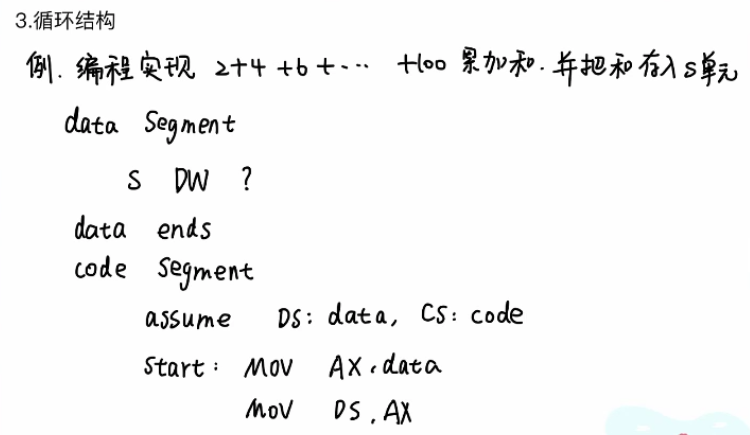 3.循环结构
例. 编程实现 2+4+6+… +100 累加和. 并把和存入S单元
data Segment
S DW ?
data ends
code Segment
assume DS: data, CS: code
Start: MOV AX, data
MOV DS, AX